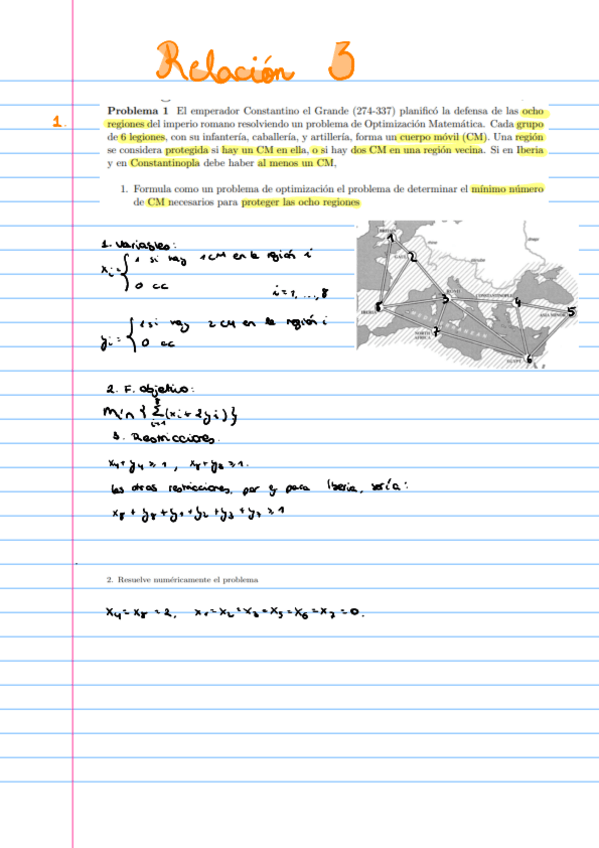 Relación 3
1.
Problema 1 El emperador Constantino el Grande (274-337) planificó la defensa de las ocho
regiones del imperio romano resolviendo un problema de Optimización Matemática. Cada grupo
de 6 legiones, con su infantería, caballería, y artillería, forma un cuerpo móvil (CM). Una región
se considera protegida si hay un CM en ella, o si hay dos CM en una región vecina. Si en Iberia
y en Constantinopla debe haber al menos un CM,
1. Formula como un problema de optimización el problema de determinar el mínimo número
de CM necesarios para proteger las ocho regiones
1. Variables:
xi = { 1 si hay 1 CM en la región i
0 cc
i = 1, ..., 8
yi = { 1 si hay 2 CM en la región i
0 cc
1
2
3
4
5
6
7
8
ROME
CONSTANTINOPLE
ASIA MINOR
IBERIA
NORTH
AFRICA
EGYPT
GAUL
2. F. objetivo:
min { Σ (xi + 2yi) }
i=1
8
3. Restricciones.
x4 + y4 ≥ 1, x8 + y8 ≥ 1.
las otras restricciones, por ej para Iberia, sería:
x8 + y8 + y1 + y2 + y3 + y7 ≥ 1
2. Resuelve numéricamente el problema
x4 = x8 = 2, x1 = x2 = x3 = x5 = x6 = x7 = 0.